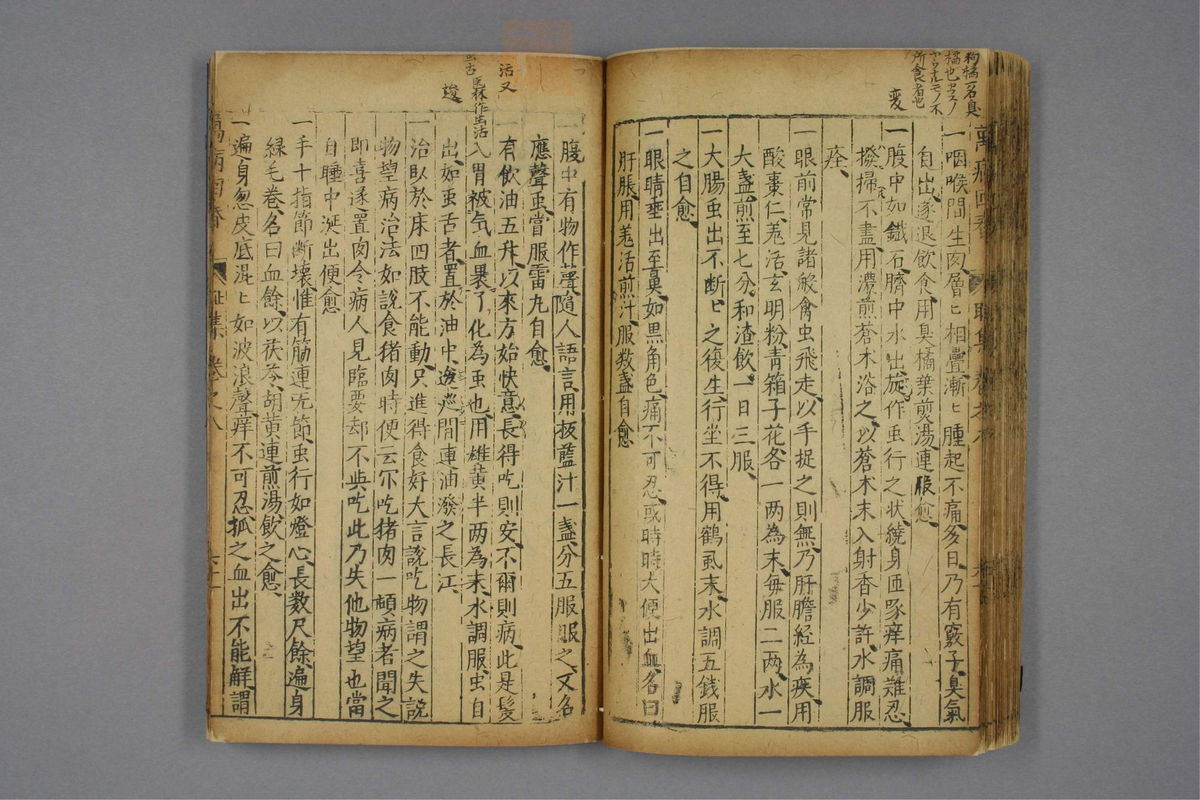 狗橘一名臭
橘也
所食者也
変
萬病回春
一咽喉間生肉層ヒ相疊漸ヒ腫起不痛多日乃有竅子臭氣
自出遂退飲食用臭橘葉煎湯連服愈
一腹中如鐵石臍中水出旋作虫行之狀繞身匝啄痒痛難忍
撥掃不盡用濃煎蒼木浴之以蒼木末入射香少許水調服
痊
一眼前常見諸般禽虫飛走以手捉之則無乃肝膽経為疾用
酸棗仁羗活玄明粉青葙子花各一两為末每服二两水一
大盞煎至七分和渣飲一日三服
一大腸虫出不断ヒ之復生行坐不得用鶴虱末水調五錢服
之自愈
一眼睛垂出至鼻如黒角色痛不可忍或時時大便出血名曰
肝脹用羗活煎汁服数盞自愈
活又
林作生活
一腹中有物作聲隨人語言用板藍汁一盞分五服服之又名
應聲虫當服雷丸自愈
一有飲油五升以來方始快意長得吃則安不爾則病此是髮
入胃被気血暴了化為虫也用雄黄半两為末水調服虫自
出如虫舌者置於油中逡巡間連油潑之長江
一治臥於床四肢不能動只進得食好大言説吃物謂之失説
物望病治法如說食猪肉時便云尓吃猪肉一頓病者聞之
即喜遂置肉令病人見臨要却不与吃此乃失他物望也當
自睡中涎出便愈
一手十指節断壊惟有筋連无節虫行如燈心長数尺餘遍身
緑毛卷名曰血餘以茯苓胡黄連煎湯飲之愈
一遍身忽皮底混ヒ如波浪聲痒不可忍抓之血出不能解謂